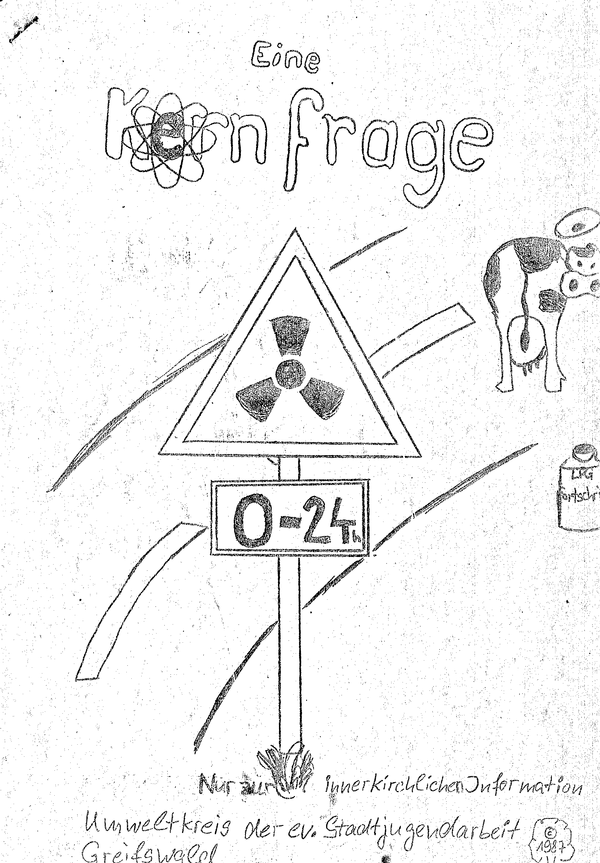 Eine
Kernfrage
LPG
0-24h
Nur zur innerkirchlichen Information
Umweltkreis der ev. Stadtjugendarbeit
Greifswald
©
1987